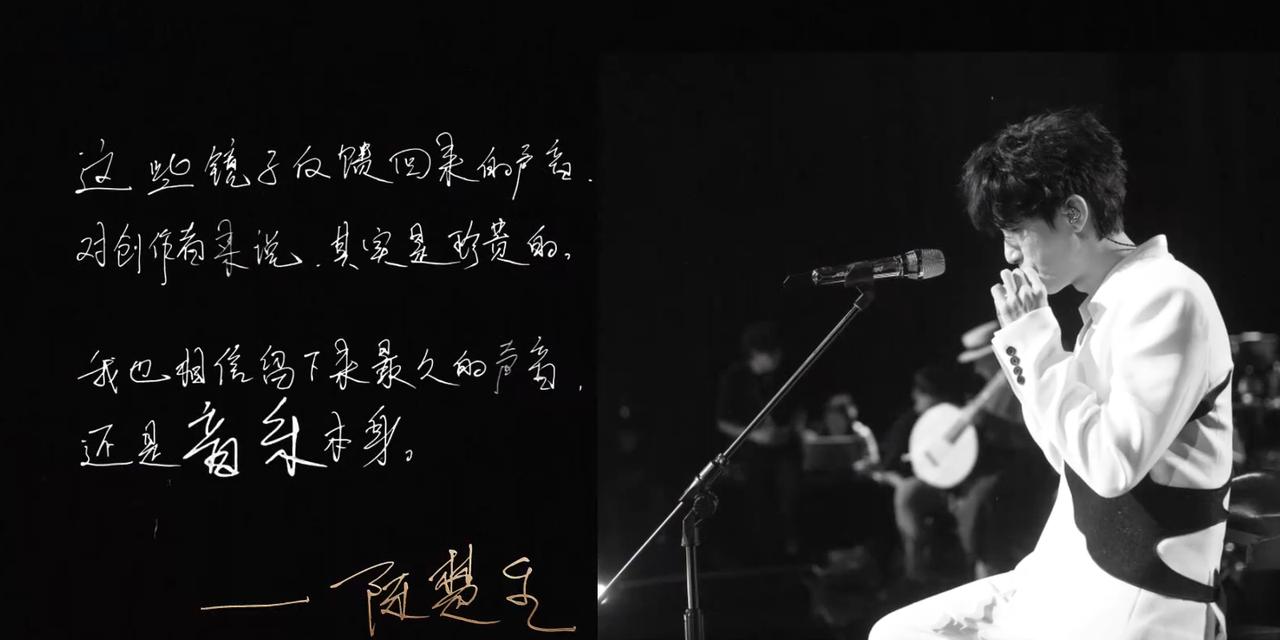 这些镜子反馈回来的声音.
对创作者来说.其实是珍贵的。
我也相信留下来最久的声音,
还是音乐本身。
—— 陈楚生